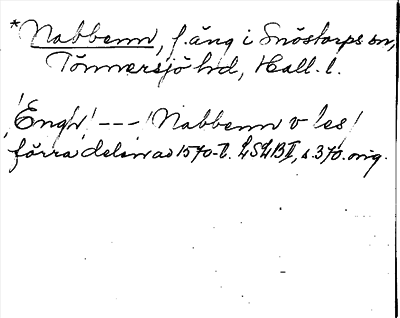 *Nabbenn, f. äng i Snöstorps sn,
Tönnersjö hd, Hall. l.
/Engh/ --- /Nabbenn v les/
förra delen av 1570-t. LSLB II, s. 370. orig.